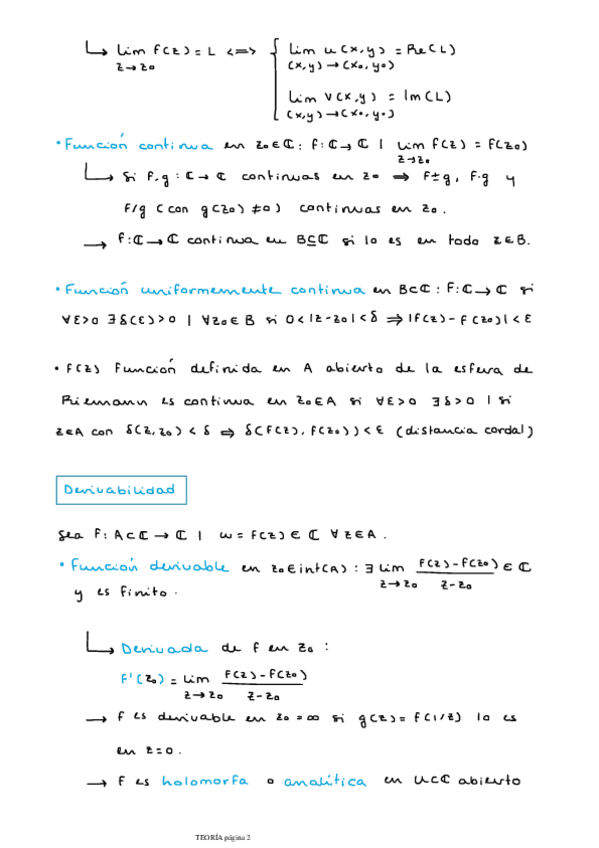 ↳ lim f(z) = L <=> { lim u(x,y) = Re(L)
z→z₀ (x,y)→(x₀,y₀)
lim v(x,y) = Im(L)
(x,y)→(x₀,y₀)
• Función continua en z₀∈ℂ: f:ℂ→ℂ | lim f(z) = f(z₀)
z→z₀
↳ Si f,g : ℂ→ℂ continuas en z₀ ⇒ f±g, f·g y
f/g (con g(z₀) ≠0) continuas en z₀.
→ f:ℂ→ℂ continua en B⊆ℂ si lo es en todo z∈B.
• Función uniformemente continua en B⊂ℂ : f:ℂ→ℂ si
∀ε>0 ∃δ(ε)>0 | ∀z₀∈B si 0<|z-z₀|<δ ⇒ |f(z)-f(z₀)|<ε
• f(z) función definida en A abierto de la esfera de
Riemann es continua en z₀∈A si ∀ε>0 ∃δ>0 | si
z∈A con δ(z,z₀) < δ ⇒ δ(f(z), f(z₀))<ε (distancia cordal)
Derivabilidad
Sea f: A⊂ℂ→ℂ | w = f(z)∈ℂ ∀z∈A.
• Función derivable en z₀∈int(A) : ∃ lim f(z)-f(z₀) ∈ ℂ
z→z₀ z-z₀
y es finito.
↳ Derivada de f en z₀ :
f'(z₀) = lim f(z)-f(z₀)
z→z₀ z-z₀
→ f es derivable en z₀ = ∞ si g(z) = f(1/z) lo es
en z=0.
→ f es holomorfa o analítica en U⊂ℂ abierto
TEORÍA página 2